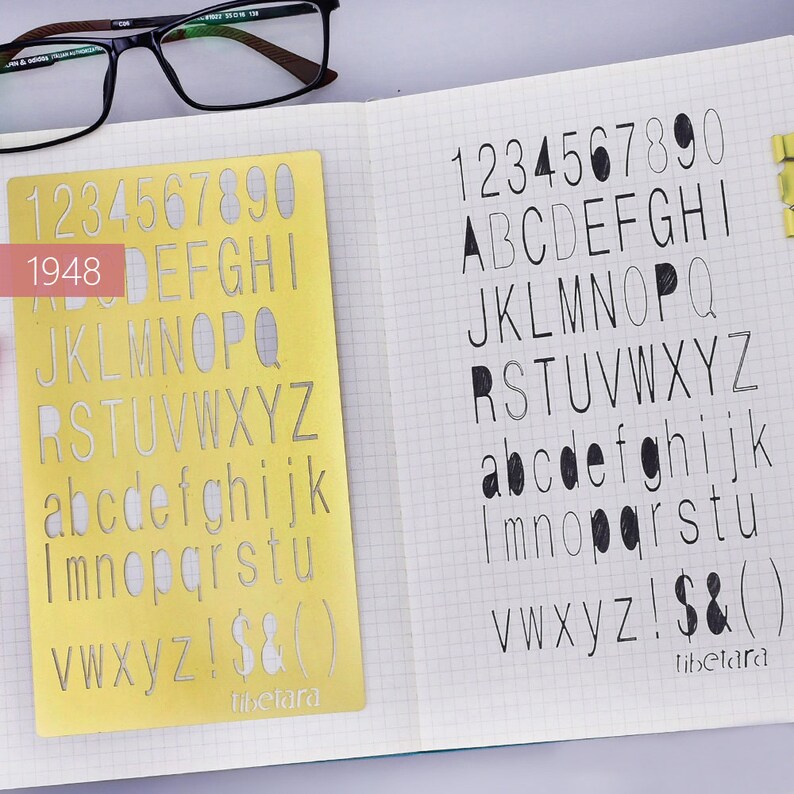 C#1022 55□16 138
C06
ITALIAN AUTHORIZAT
1234567890
ABCDEFGHI
JKLMNOPQ
RSTUVWXYZ
abcdefghijk
lmnopqrstu
vwxyz!$&()
tibetara
1948
1234567890
ABCDEFGHI
JKLMNOPQ
RSTUVWXYZ
abcdefghijk
lmnopqrstu
vwxyz!$&()
tibetara